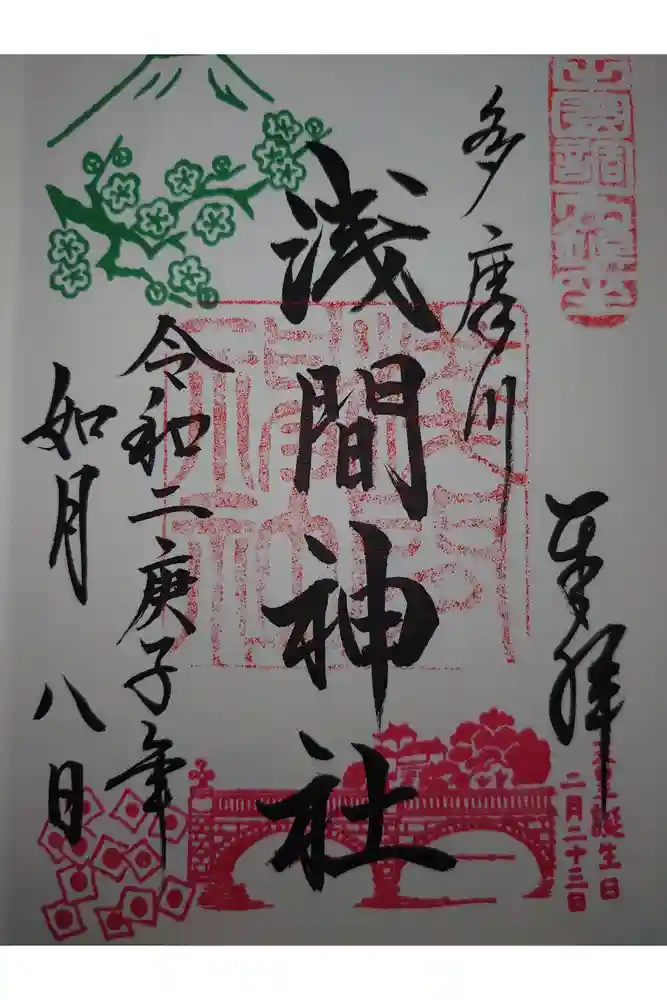 奉拝
天皇誕生日
二月二十三日
多摩川
浅間神社
令和二庚子年
如月
八日